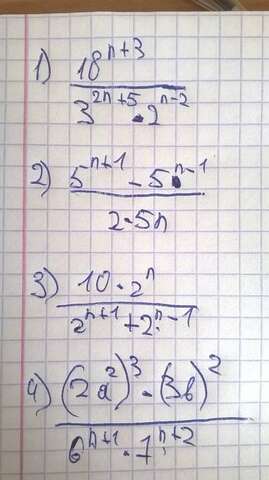 1) 18^{n+3}
3^{2n+5} · 2^{n-2}
2) 5^{n+1} - 5^{n-1}
2 · 5n
3) 10 · 2^n
2^{n+1} + 2^{n-1}
4) (2a^2)^3 · (3b)^2
6^{n+1} · 7^{n+2}